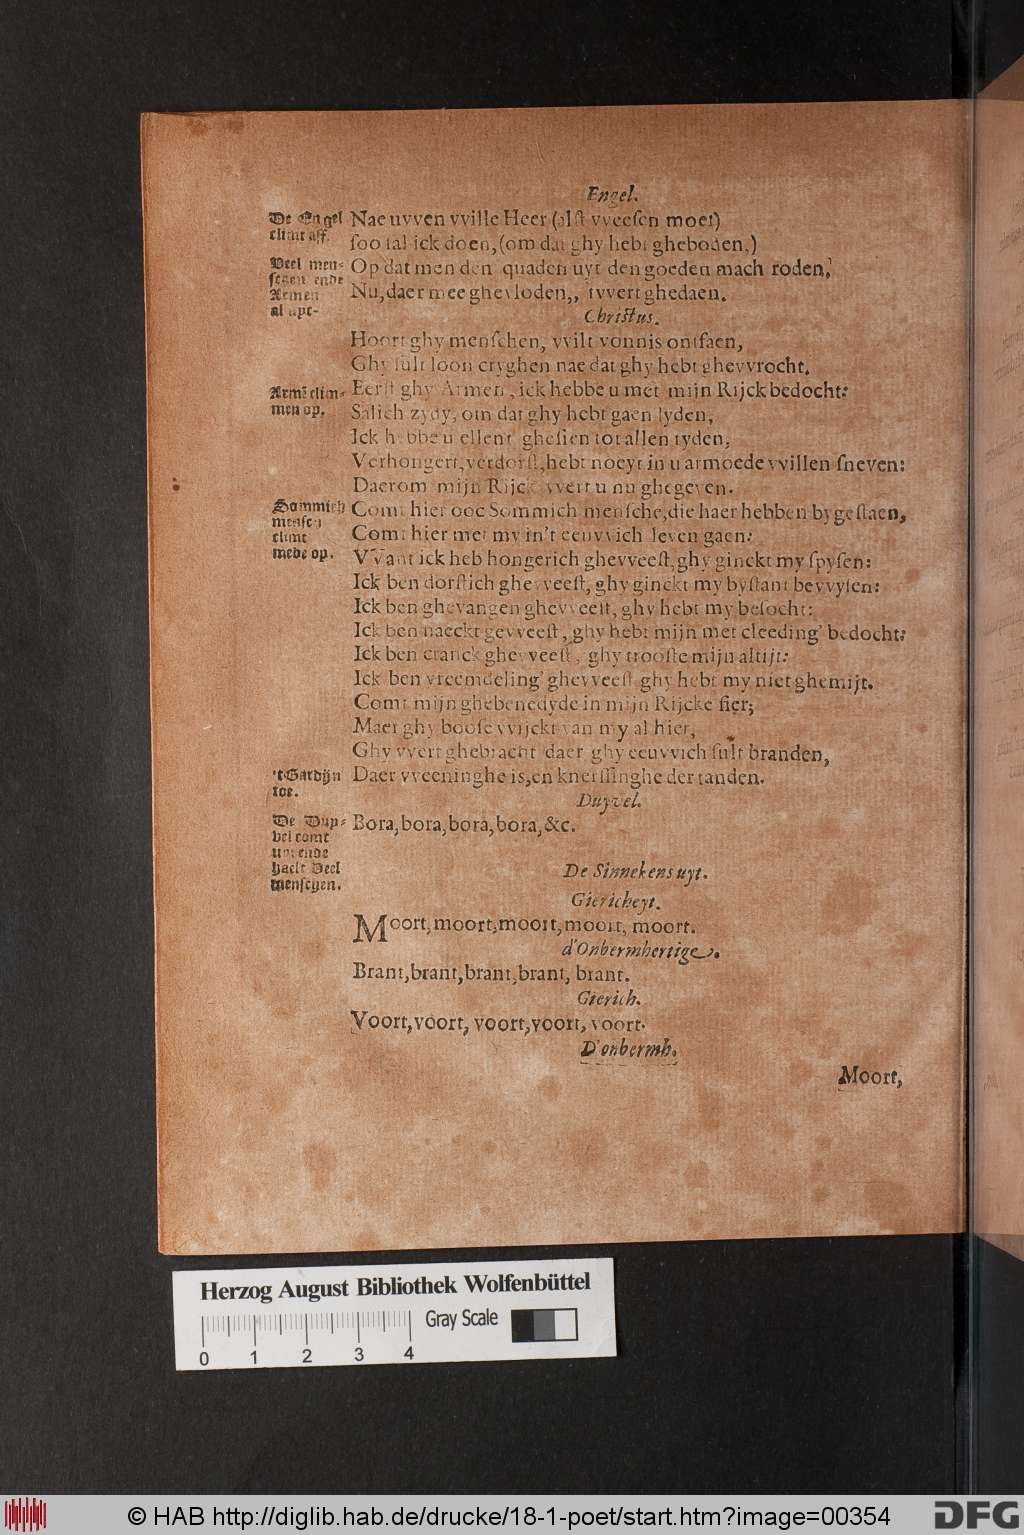 Engel.
De Engel
climt aff.
Nae uvven vville Heer (alſt vveeſen moet)
ſoo ſal ick doen, (om dat ghy hebt gheboden,)
Veel men-
ſcgen ende
Armen
al upt-
Op dat men den quaden uyt den goeden mach roden,
Nu, daer mee ghevloden,, tvvert ghedaen.
Chriſtus.
Hoort ghy menſchen, vvilt vonnis ontfaen,
Ghy ſult loon cryghen nae dat ghy hebt ghevvrocht.
Armē clim-
men op.
Eerſt ghy Armen, ick hebbe u met mijn Rijck bedocht:
Salich zydy, om dat ghy hebt gaen lyden,
Ick hebbe u ellent gheſien tot allen tyden,
Verhongert, verdorſt, hebt noeyt in u armoede vvillen ſneven:
Daerom mijn Rijck vvert u nu ghegeven.
Sommich
menſcn
climt
mede op.
Comt hier ooc Sommich menſche, die haer hebben bygeſtaen,
Comt hier met my in't eeuvvich leven gaen:
VVant ick heb hongerich ghevveeſt, ghy ginckt my ſpyſen:
Ick ben dorſtich ghevveeſt, ghy ginckt my byſtant bevvyſen:
Ick ben ghevangen ghevveeſt, ghy hebt my beſocht:
Ick ben naeckt gevveeſt, ghy hebt mijn met cleeding' bedocht:
Ick ben cranck ghevveeſt, ghy trooſte mijn altijt:
Ick ben vreemdeling' ghevveeſt ghy hebt my niet ghemijt.
Comt mijn ghebenedyde in mijn Rijcke fier;
Maer ghy booſe vvijckt van my al hier,
Ghy vvert ghebracht daer ghy eeuvvich ſult branden,
't Gardijn
toe.
Daer vveeninghe is, en knerſſinghe der tanden.
Duyvel.
De Duy-
vel comt
uyt ende
haelt Veel
menſchen.
Bora, bora, bora, bora, &c.
De Sinnekens uyt.
Giericheyt.
Moort, moort, moort, moort, moort.
d'Onbermhertige.
Brant, brant, brant, brant, brant.
Gierich.
Voort, voort, voort, voort, voort.
D'onbermh.
Moort,
Herzog August Bibliothek Wolfenbüttel
Gray Scale
0 1 2 3 4
© HAB http://diglib.hab.de/drucke/18-1-poet/start.htm?image=00354
DFG